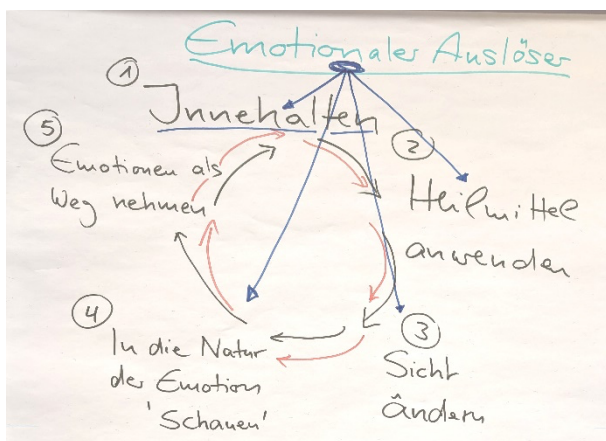 Emotionaler Auslöser
1
Innehalten
2
Heilmittel
anwenden
3
Sicht
ändern
4
In die Natur
der Emotion
'Schauen'
5
Emotionen als
Weg nehmen